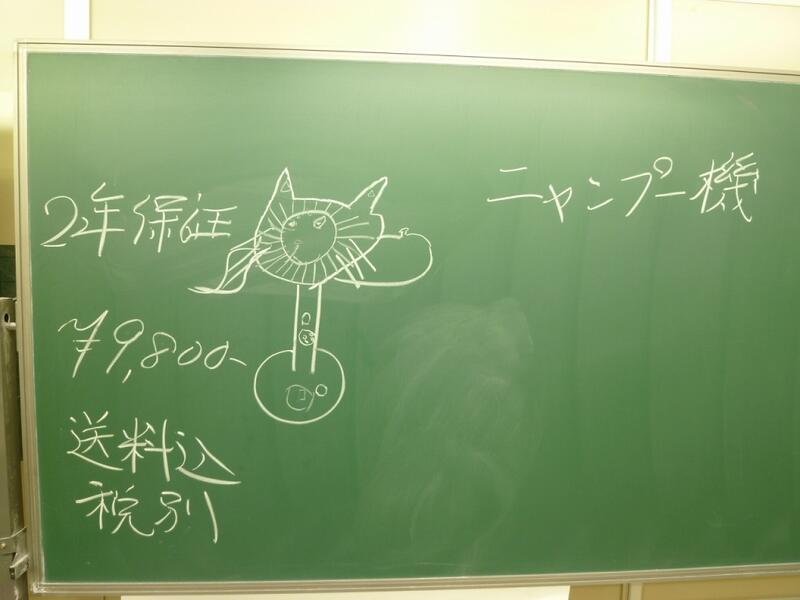 ニャンプー機
2年保証
¥9,800-
送料込
税別